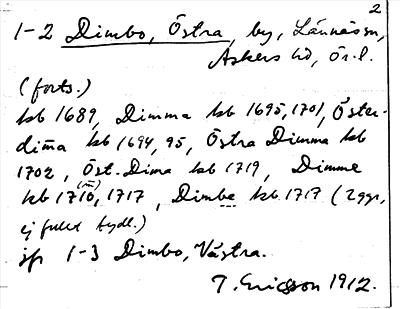 2
1-2 Dimbo, Östra, by, Lännäs sn,
Askers hd, Ör. l.
(forts.)
kb 1689, Dimma kb 1695, 1701, Öster-
dim̄a kb 1694, 95, Östra Dimma kb
1702, Öst. Dima kb 1719, Dimme
kb 1710, (m) 1717, Dimbe kb 1717 (2 ggr,
ej fullt tydl.)
jfr 1-3 Dimbo, Västra.
T. Ericsson 1912.